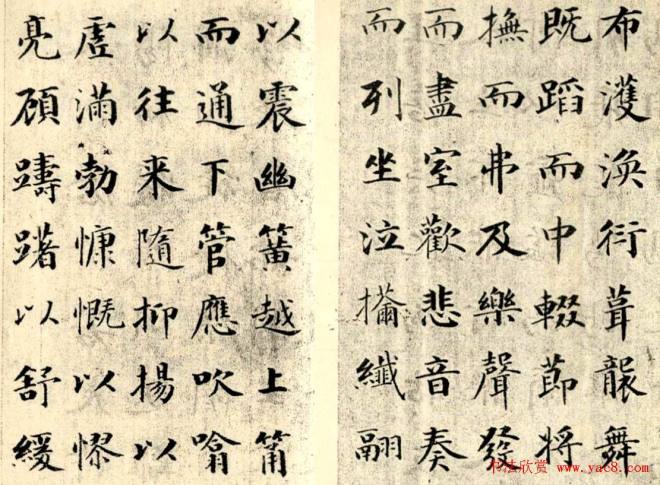 布濩渙衍葺襲舞
既蹈而中輟節將
撫而弗及樂聲發
而盡室歡悲音奏
而列坐泣纖翮
以震幽簧越上筩
而通下管應吹噏
以往来隨抑揚以
虛滿勃慷慨以憀
亮顧躊躇以舒緩
书法欣赏 www.yac8.com